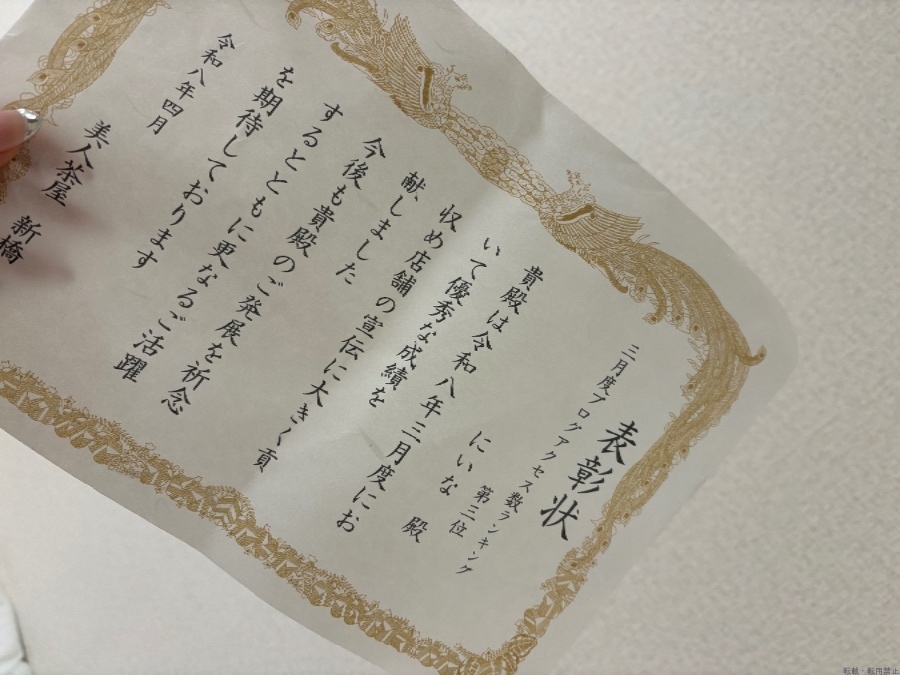 表彰状
三月度ブログアクセス数ランキング
第三位
にいな 殿
貴殿は令和八年三月度にお
いて優秀な成績を
収め店舗の宣伝に大きく貢
献しました
今後も貴殿のご発展を祈念
するとともに更なるご活躍
を期待しております
令和八年四月
美人茶屋 新橋
転載・転用禁止